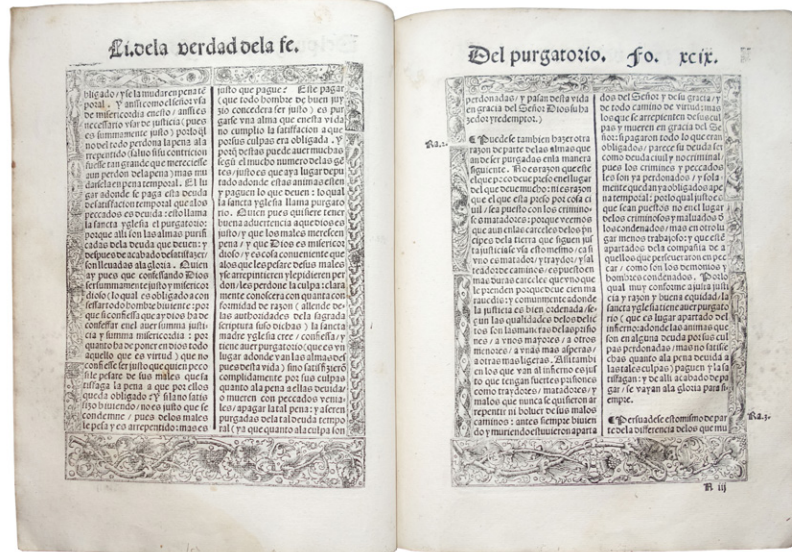 Li. dela verdad dela fe.
bligado / y se la mudar en pena tē
poral. Y ansi como el señor vsa
de misericordia enesto / ansi es
necessario vsar de justicia (pues
es summamente justo) porlo q̄l
no del todo perdona la pena al a
rrepentido (saluo si su contricion
fuesse tan grande que mereciesse
aun perdon dela pena) mas mu
dar sela en pena temporal. El lu
gar adonde se paga esta deuda
de satisfacion temporal que alos
peccados es deuida: esto llama
la sancta yglesia el purgatorio:
porque alli son las almas purifi
cadas dela deuda que deuen: y
despues de acabado de satisfazer
son lleuadas ala gloria. Quien
ay pues que confessando Dios
ser summamente justo y misericor
dioso (lo qual es obligado a con
fessar todo hombre biuiente: por
que si confiessa que ay dios ha de
confessar enel auer summa justi
cia y summa misericordia: por
quanto ha de poner en dios todo
aquello que es virtud) que no
confiesse ser justo que quien peco
si le pesare de sus males que sa
tisfaga la pena a que por ellos
queda obligado. Y si la no satis
fizo biuiendo / no es justo que se
condemne / pues delos males
le pesa y es arrepentido: mas es
justo que pague? Este pagar
(que todo hombre de buen juy
zio concedera ser justo) es pur
garse vna alma que enesta vida
no cumplio la satisfacion a que
por sus culpas era obligada. Y
porq̄ destas puede auer muchas
segū el mucho numero delas gē
tes / justo es que aya lugar depu
tado adonde estas animas esten
y paguen lo que deuen: lo qual
la sancta yglesia llama purgato
rio. Quien pues quisiere tener
buena aduertencia a que dios es
justo / y que los males merescen
pena / y que Dios es misericor
dioso / y es cosa conueniente que
alos que les pesare de sus males
y se arrepintieren y le pidieren per
don / les perdone la culpa: clara
mente conoscera con quanta con
formidad de razon (allende de
las authoridades dela sagrada
scriptura suso dichas) la sancta
madre yglesia cree / confiessa / y
tiene auer purgatorio (que es vn
lugar adonde van las almas des
pues desta vida) si no satisfizierō
complidamente por sus culpas
quanto ala pena a ellas deuida /
o mueren con peccados venia-
les / a pagar la tal pena: y a seren
purgadas dela tal deuda tempo
ral (ya que quanto ala culpa son
Del purgatorio. Fo. xcix.
perdonadas / y passan desta vida
en gracia del Señor Dios su ha
zedor y redemptor.)
Ra.2.
¶ Puedese tambien hazer otra
razon de parte delas almas que
an de ser purgadas enla manera
siguiente. No es razon que este
el que poco deue preso enel lugar
del que deue mucho: ni es razon
que el que esta preso por cosa ci
uil / sea puesto con los crimino
sos matadores: porque veemos
que aun enlas carceles delos prī
cipes dela tierra que siguen jus
ta justicia se via esto mesmo / ca si
vno es matador / y traydor / y sal
teador de caminos / es puesto en
mas duras carceles que vno que
le prenden porque deue cien ma
rauedis: y comunmente adonde
la justicia es bien ordenada / se-
gun las qualidades delos delic
tos son las manctas delas prisio
nes / a vnos mayores / a otros
menores / a vnas mas asperas /
a otras mas ligeras. Assi tambi
en los que van al infierno es jus
to que tengan fuertes prisiones
como traydores / matadores / y
malos que nunca se quisieron ar
repentir ni boluer de sus malos
caminos: antes siempre biuien
do y muriendo estuuieron aparta
dos del Señor y de su gracia / y
de todo camino de virtud: mas
los que se arrepienten de sus cul
pas y mueren en gracia del Se
ñor: si pagaron todo lo que eran
obligados / parece su deuda ser
como deuda ciuil / y no criminal:
pues los crimines y peccados
les son ya perdonados / y sola-
mente quedan ya obligados a pe
na temporal: por lo qual justo es
que sean puestos no enel lugar
delos criminosos y maluados d̄
los condenados / mas en otro lu
gar menos trabajoso: y que esté
apartados dela compañia de a
quellos que perseueraron en pec
car / como son los demonios y
hombres condenados. Por lo
qual muy conforme a justa justi
cia y razon y buena equidad / la
sancta yglesia tiene auer purgato
rio (que es lugar apartado del
infierno: adonde las animas que
son en alguna deuda por sus cul
pas perdonadas / mas no satisfe
chas quanto ala pena deuida a
las tales culpas) paguen y la sa
tisfagan: y de alli acabado de pa
gar / se vayan ala gloria para si-
empre.
Ra.3.
¶ Persuadese esto mismo de par
te dela differencia delos que mu
R iij